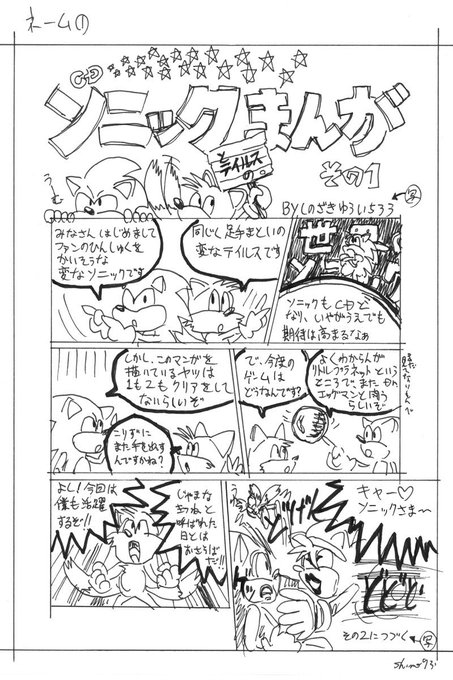 ネーム①
CD
ソニックまんが
と
テイルスの
その1
うーむ
写
BY しのざきゆういち33
みなさんはじめまして
ファンのひんしゅくを
かいそうな
変なソニックです
同じく足手まといの
変なテイルスです
ソニックもCDと
なり、いやがうえでも
期待は高まるなぁ
しかし、このマンガを
描いているヤツは
1も2もクリアをして
ないらしいぞ
こりずに
また手を出すん
ですかね?
で、今度の
ゲームは
どうなんです?
よくわからんが
リトルプラネットという
ところで、また
エッグマンと闘う
らしいぞ
よし!今回は
僕も活躍
するぞ!!
じゃまな
きつねと
呼ばれた
日とは
おさらば
だ!!
キャー♡
ソニックさま〜
ドドド
その2につづく
写